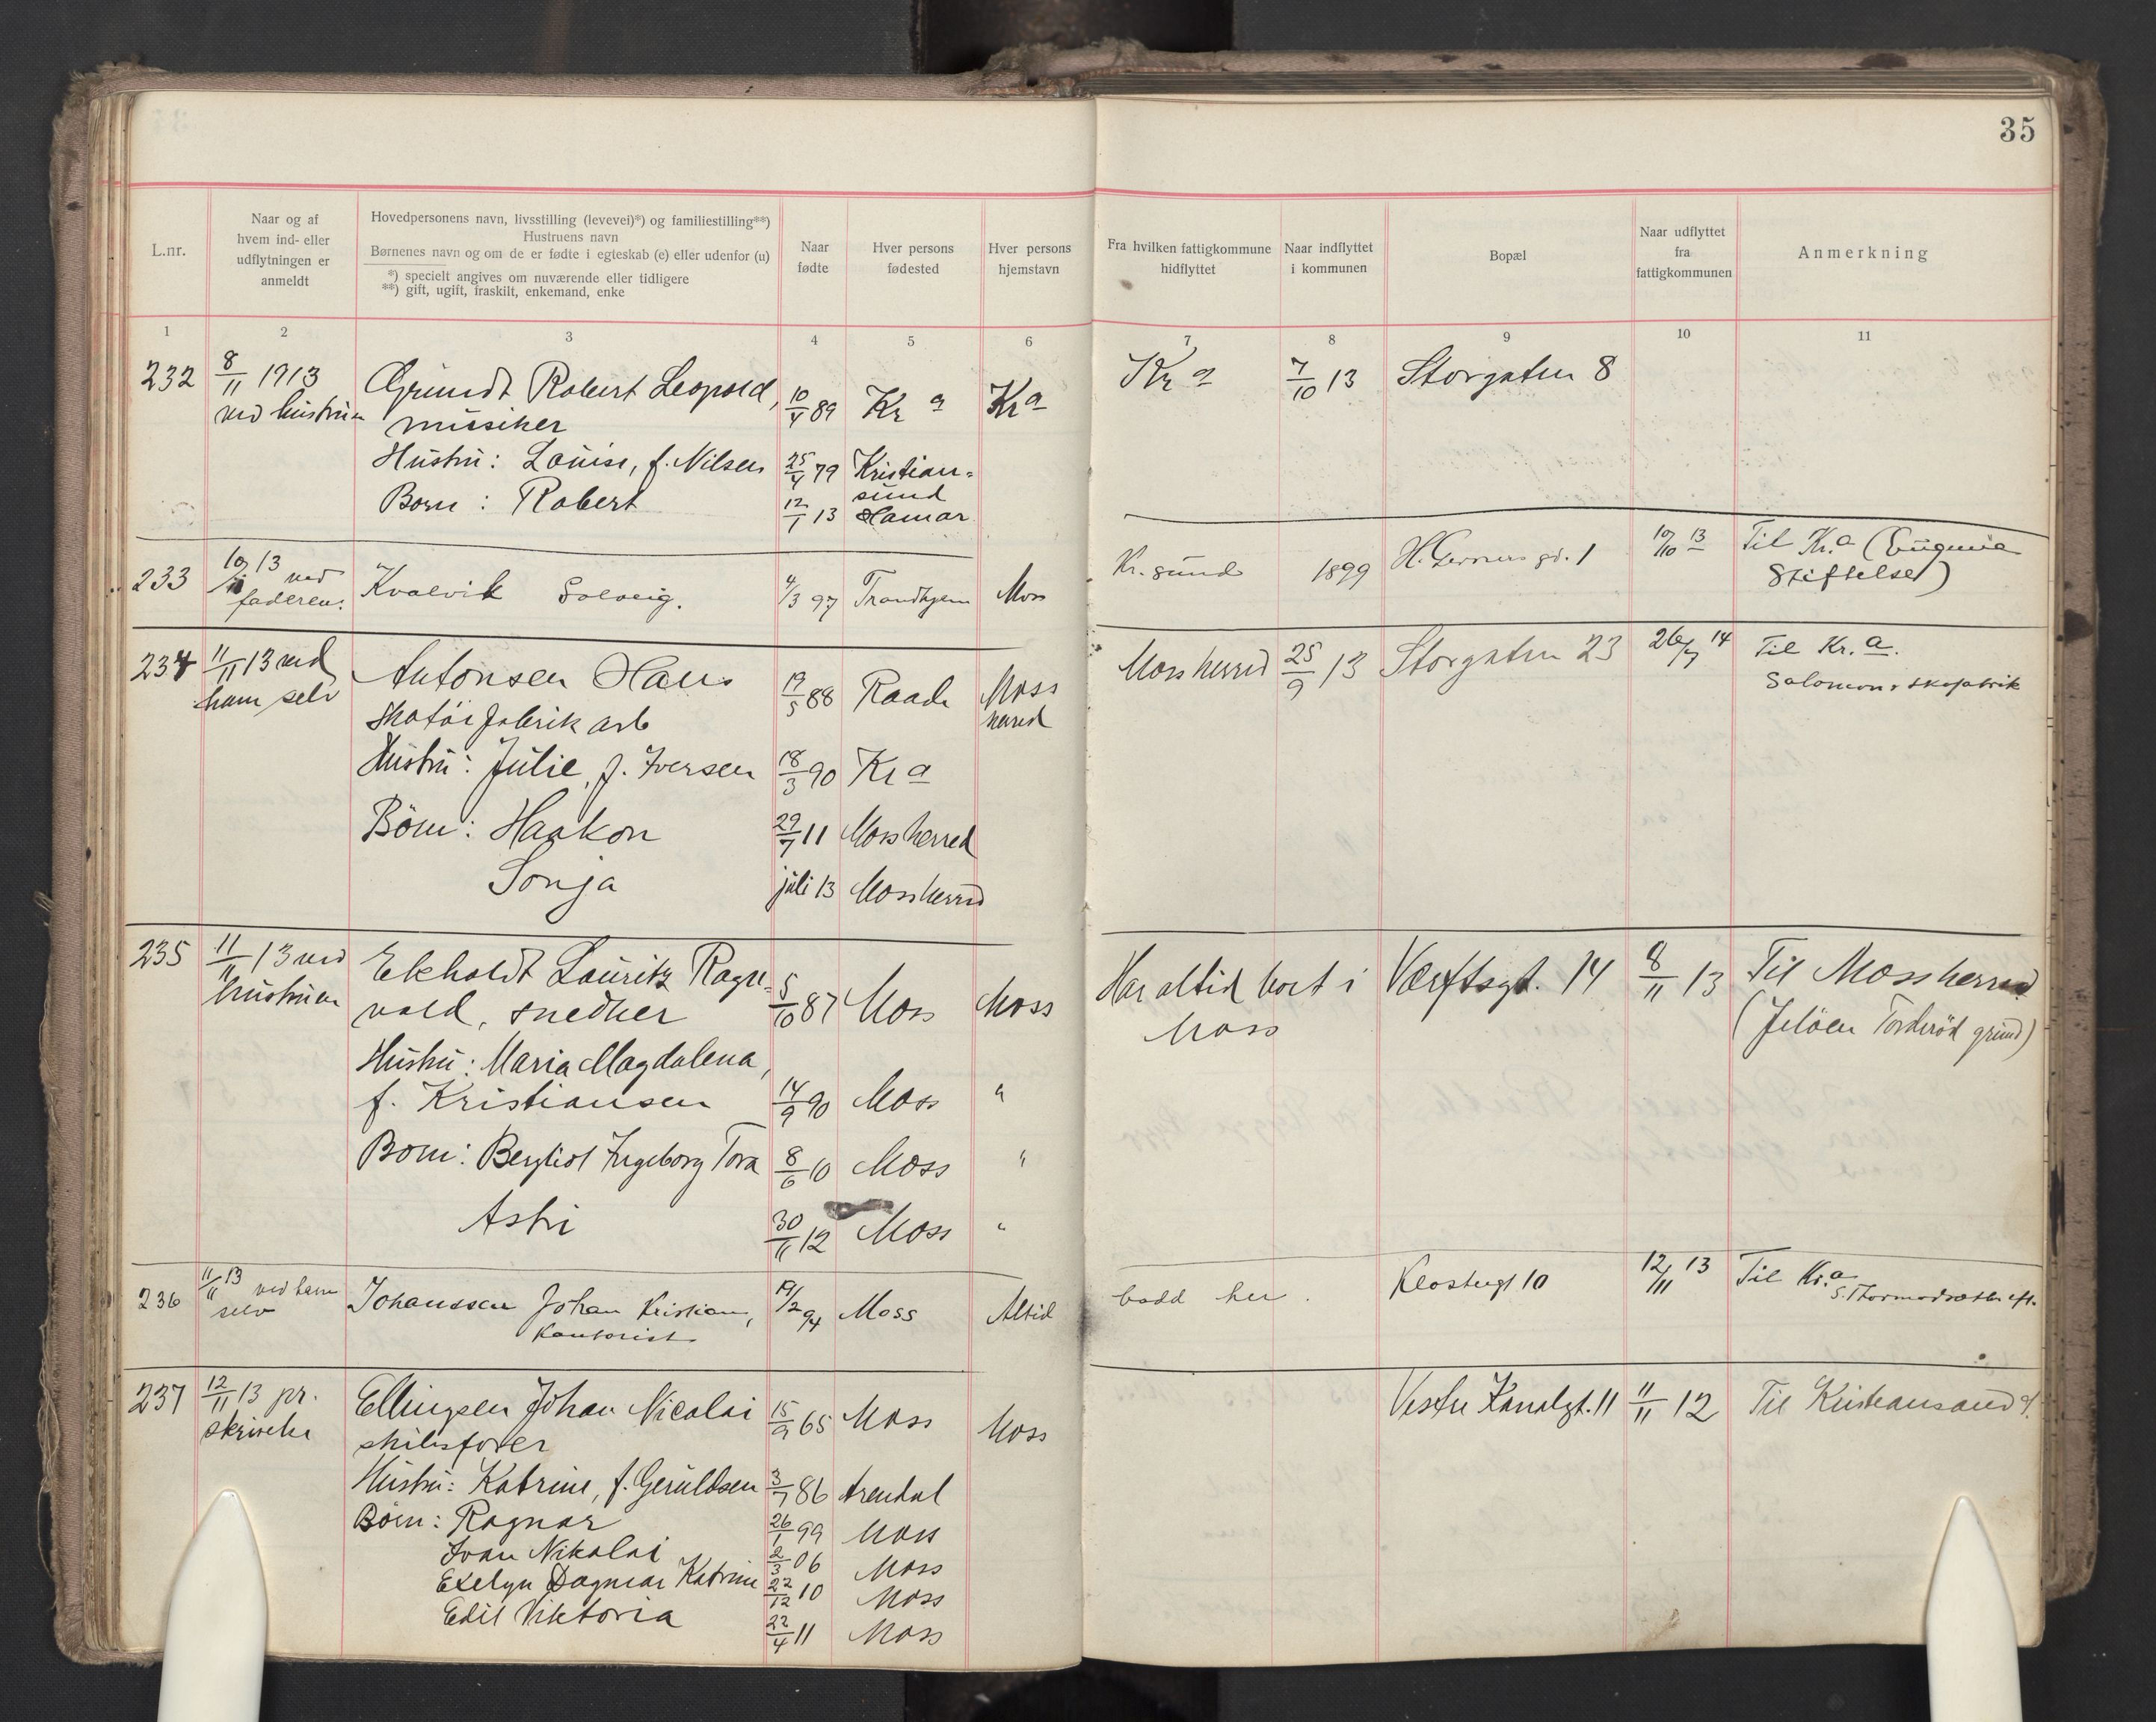 35
L.nr.
Naar og af
hvem ind- eller
udflytningen er
anmeldt
Hovedpersonens navn, livsstilling (levevei)*) og familiestilling**)
Hustruens navn
Børnenes navn og om de er fødte i egteskab (e) eller udenfor (u)
*) specielt angives om nuværende eller tidligere
**) gift, ugift, fraskilt, enkemand, enke
Naar
fødte
Hver persons
fødested
Hver persons
hjemstavn
Fra hvilken fattigkommune
hidflyttet
Naar indflyttet
i kommunen
Bopæl
Naar udflyttet
fra
fattigkommunen
Anmerkning
1 2 3 4 5 6 7 8 9 10 11
232 8/11 1913 Grundt Robert Leopold, 10/4 89 Kr a Kr a Kr a 7/10 13 Storgaten 8
ved hustruen musiker
Hustru: Louise, f. Nilsen 25/4 79 Kristian-
sund
Barn: Robert 12/1 13 Hamar
233 13 ved Kvalvik Solveig. 4/3 97 Trondhjem Moss Kr.sund 1899 H. Gerners gd. 1 10/10 13 Til Kr.a (Eugenia
faderen. Stiftelse)
234 11/11 13 ved Antonsen Hans 19/5 88 Raade Moss Moss herred 25/9 13 Storgaten 23 26/7 14 Til Kr.a.
ham selv skotøifabrik arb herred Salomons skofabrik
Hustru: Julie, f. Iversen 18/3 90 Kr a
Börn: Haakon 29/7 11 Moss herred
Sonja juli 13 Moss herred
235 11/11 13 ved Ekholdt Lauritz Ragn- 5/10 87 Moss Moss Har altid boet i Værftsgt. 14 8/11 13 Til Moss herred
hustruen vald, snedker Moss (Jelöen Torderöd grund)
Hustru: Maria Magdalena,
f. Kristiansen 14/9 90 Moss "
Barn: Bergliot Ingeborg Tora 8/6 10 Moss "
Astri 30/11 12 Moss "
236 11/11 13 ved ham Johanssen Johan Kristian, 19/2 94 Moss Altid bodd her. Klostergt 10 12/11 13 Til Kr.a
selv Kontorist
237 12/11 13 pr. Ellingsen Johan Nicolai 15/9 65 Moss Moss Vestre Kanalgt. 11 11/11 12 Til Kristiansand S.
skrivelse skibsfører
Hustru: Katrine, f. Geruldsen 3/7 86 Arendal
Börn: Ragnar 26/1 99 Moss
Ivan Nikolai 2/3 06 Moss
Evelyn Dagmar Katrine 22/12 10 Moss
Edil Viktoria 22/4 11 Moss